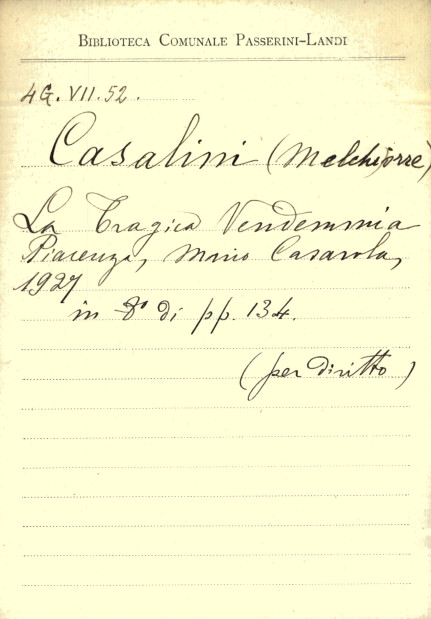 BIBLIOTECA COMUNALE PASSERINI-LANDI
4G. VII. 52.
Casalini (Melchiorre)
La Tragica Vendemmia
Piacenza, Mario Casarola,
1927
in 8° di pp. 134.
(per diritto)